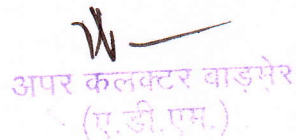 अपर कलक्टर वाड़मेर
(ए.डी.एम.)